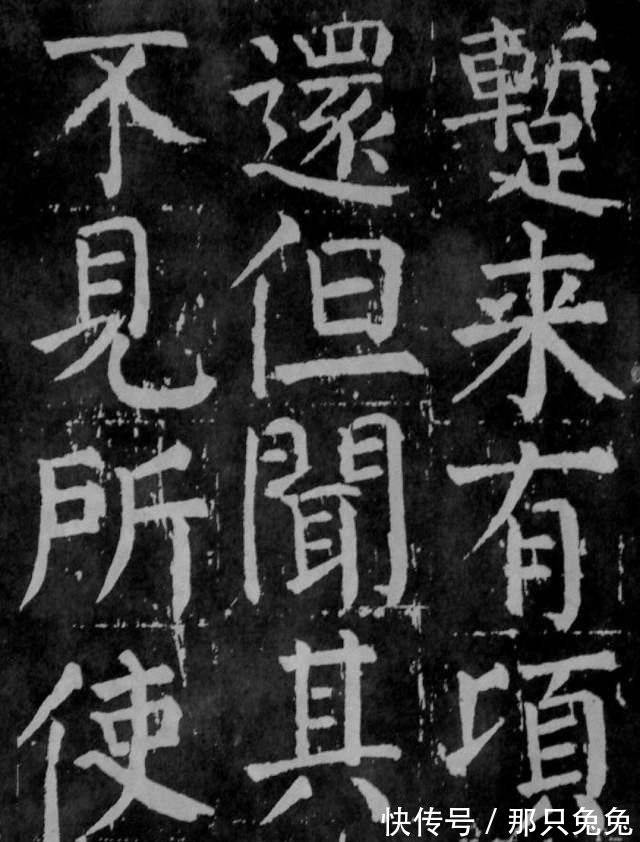 蹔来有頃
還但聞其
不見所使
快传号 / 那只兔兔